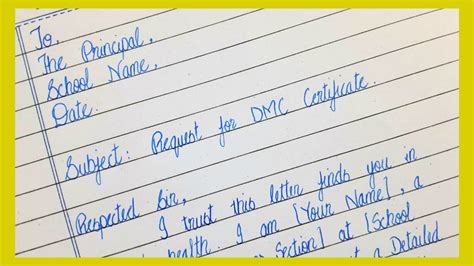 To,
The Principal,
School Name,
Date:
Subject: Request for DMC Certificate.
Respected Sir,
I trust this letter finds you in
health. I am [Your Name], a
Section] at [School
a Detailed